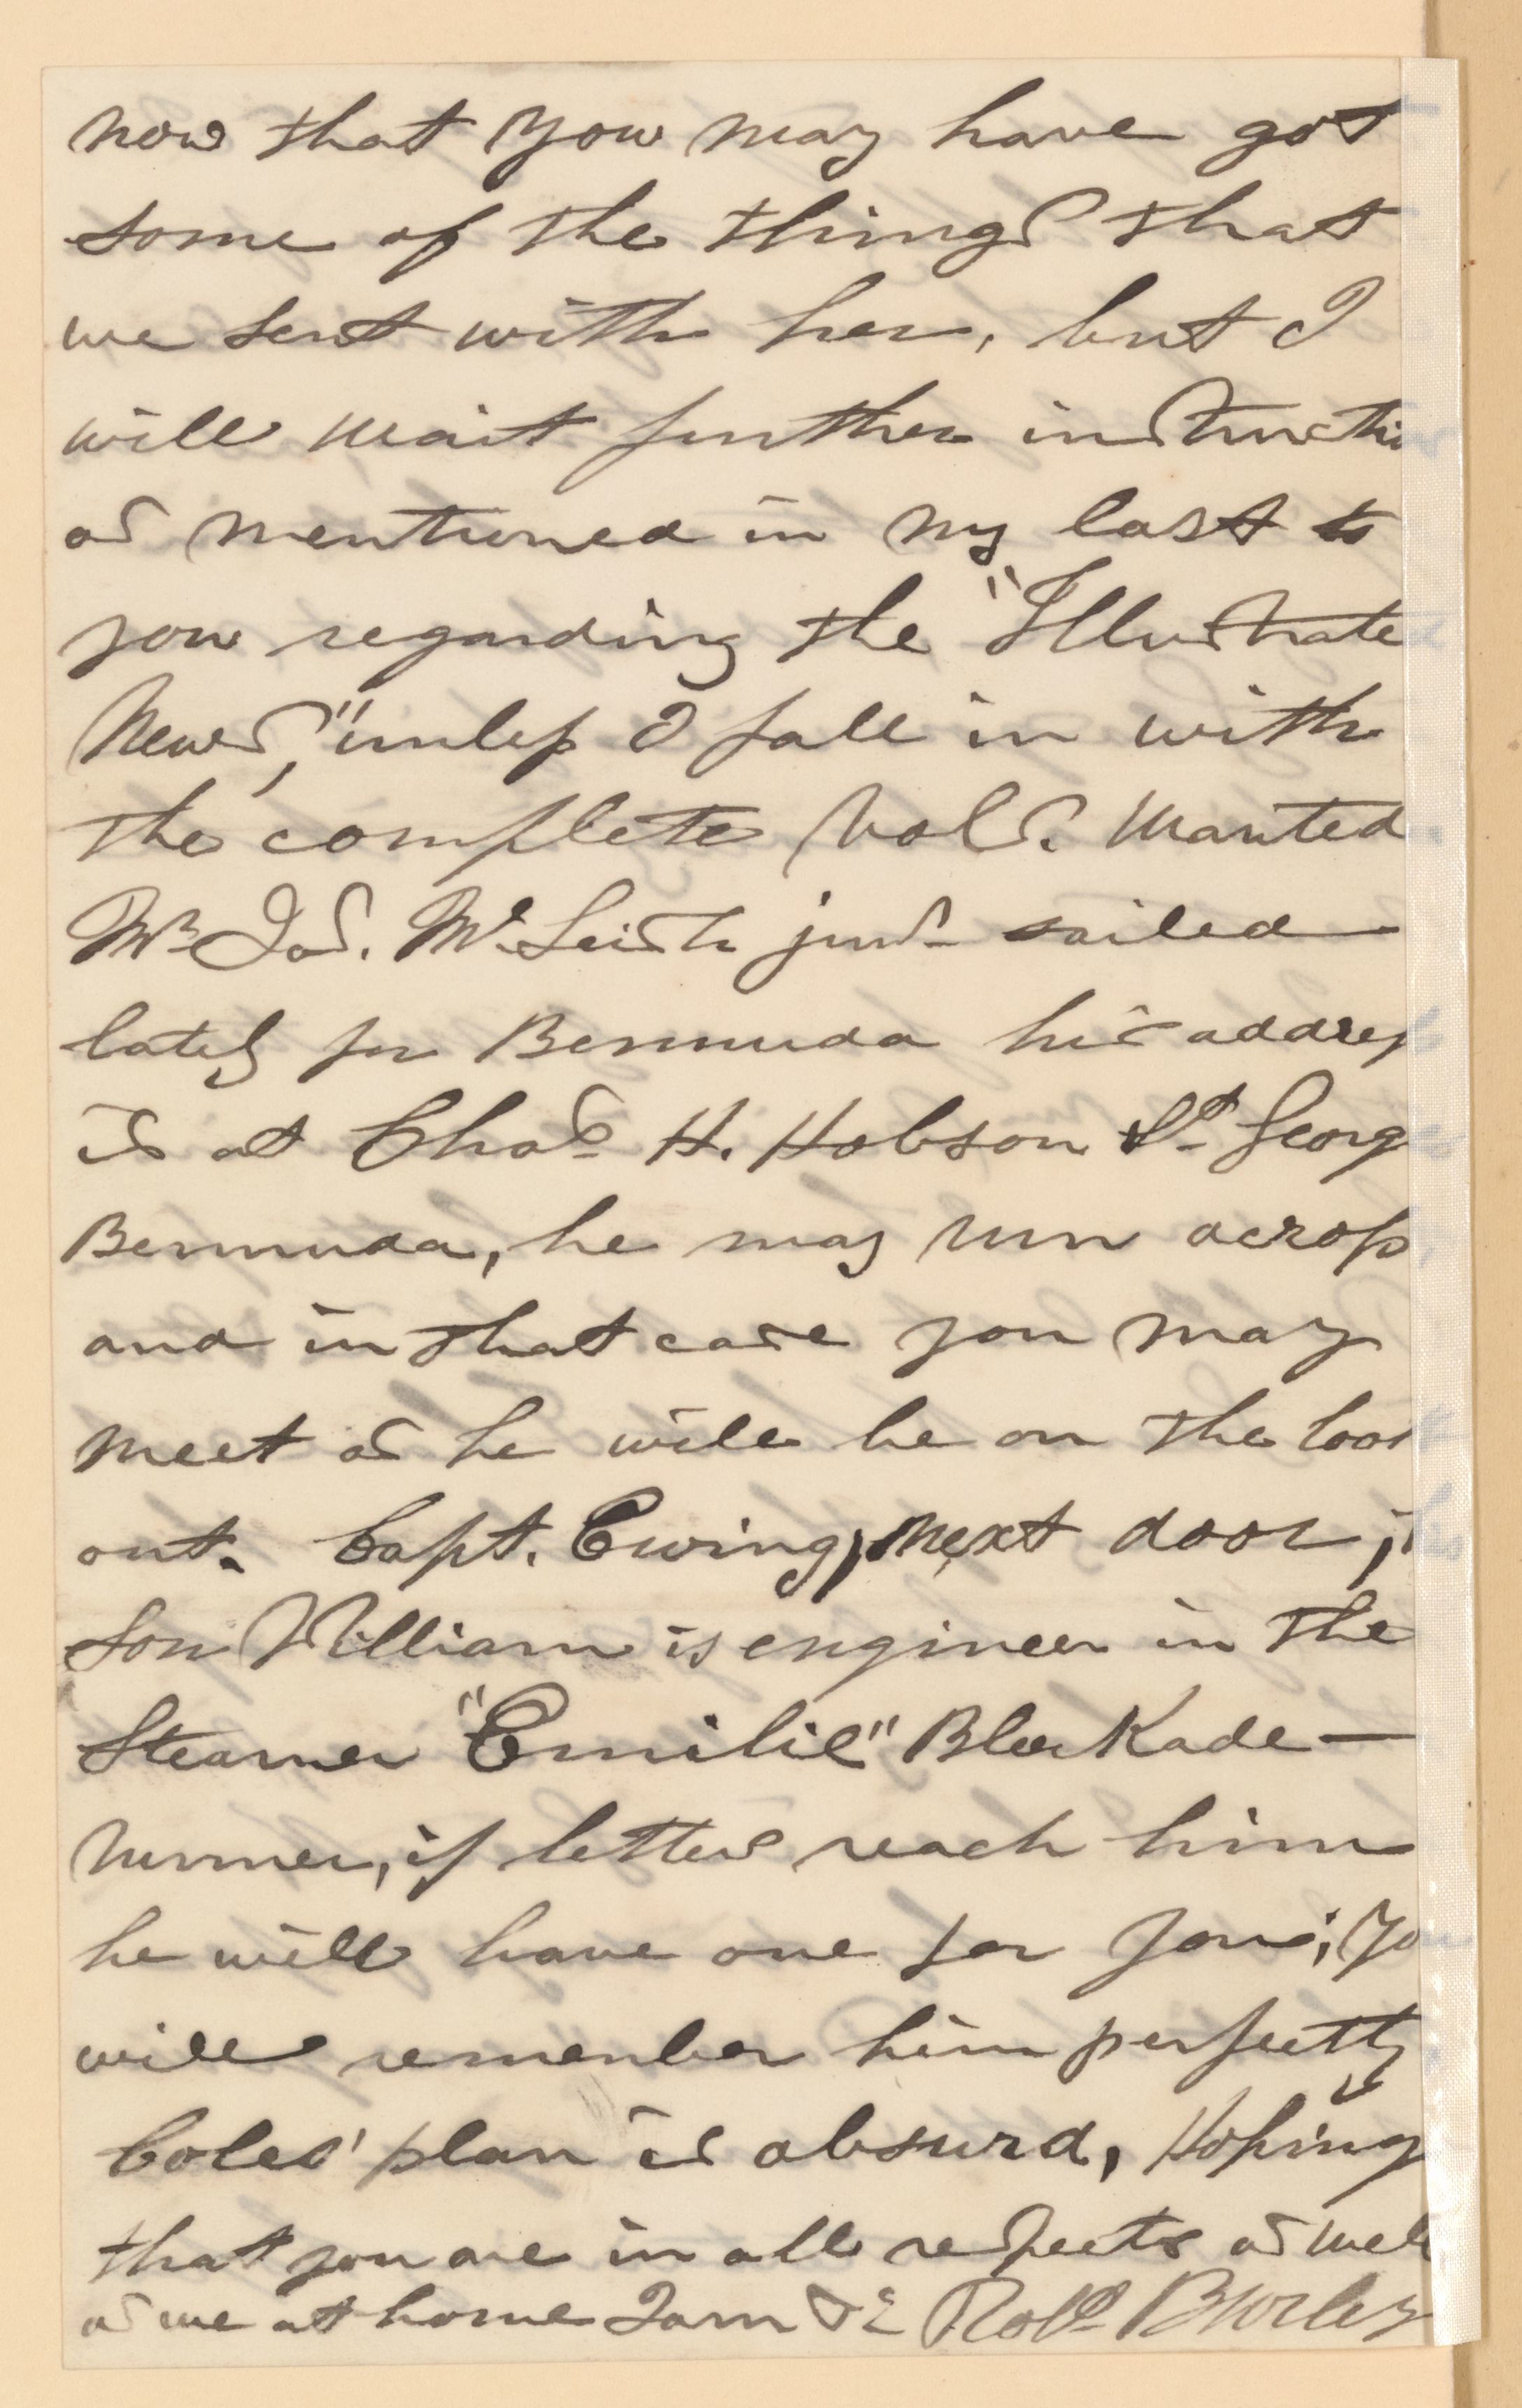 now that you may have got
some of the things that
we sent with her, but I
will wait further instructi
as mentioned in my last to
you regarding the "Illustrate
News," unless I fall in with
the complete Vols. Wanted
Mr Jas. McLeish junr sailed
lately for Bermuda his address
is at Chas H. Hobson St. George
Bermuda, he may run across
and in that case you may
meet as he will be on the look
out. Capt. Ewing, next door,
son William is engineer in the
Steamer "Emilie" Blockade —
runner, if letters reach him
he will have one for you; yo
will remember him perfectly
Coles' plan is absurd, Hoping
that you are in all respects as well
as we at home I am &c Robt Burley